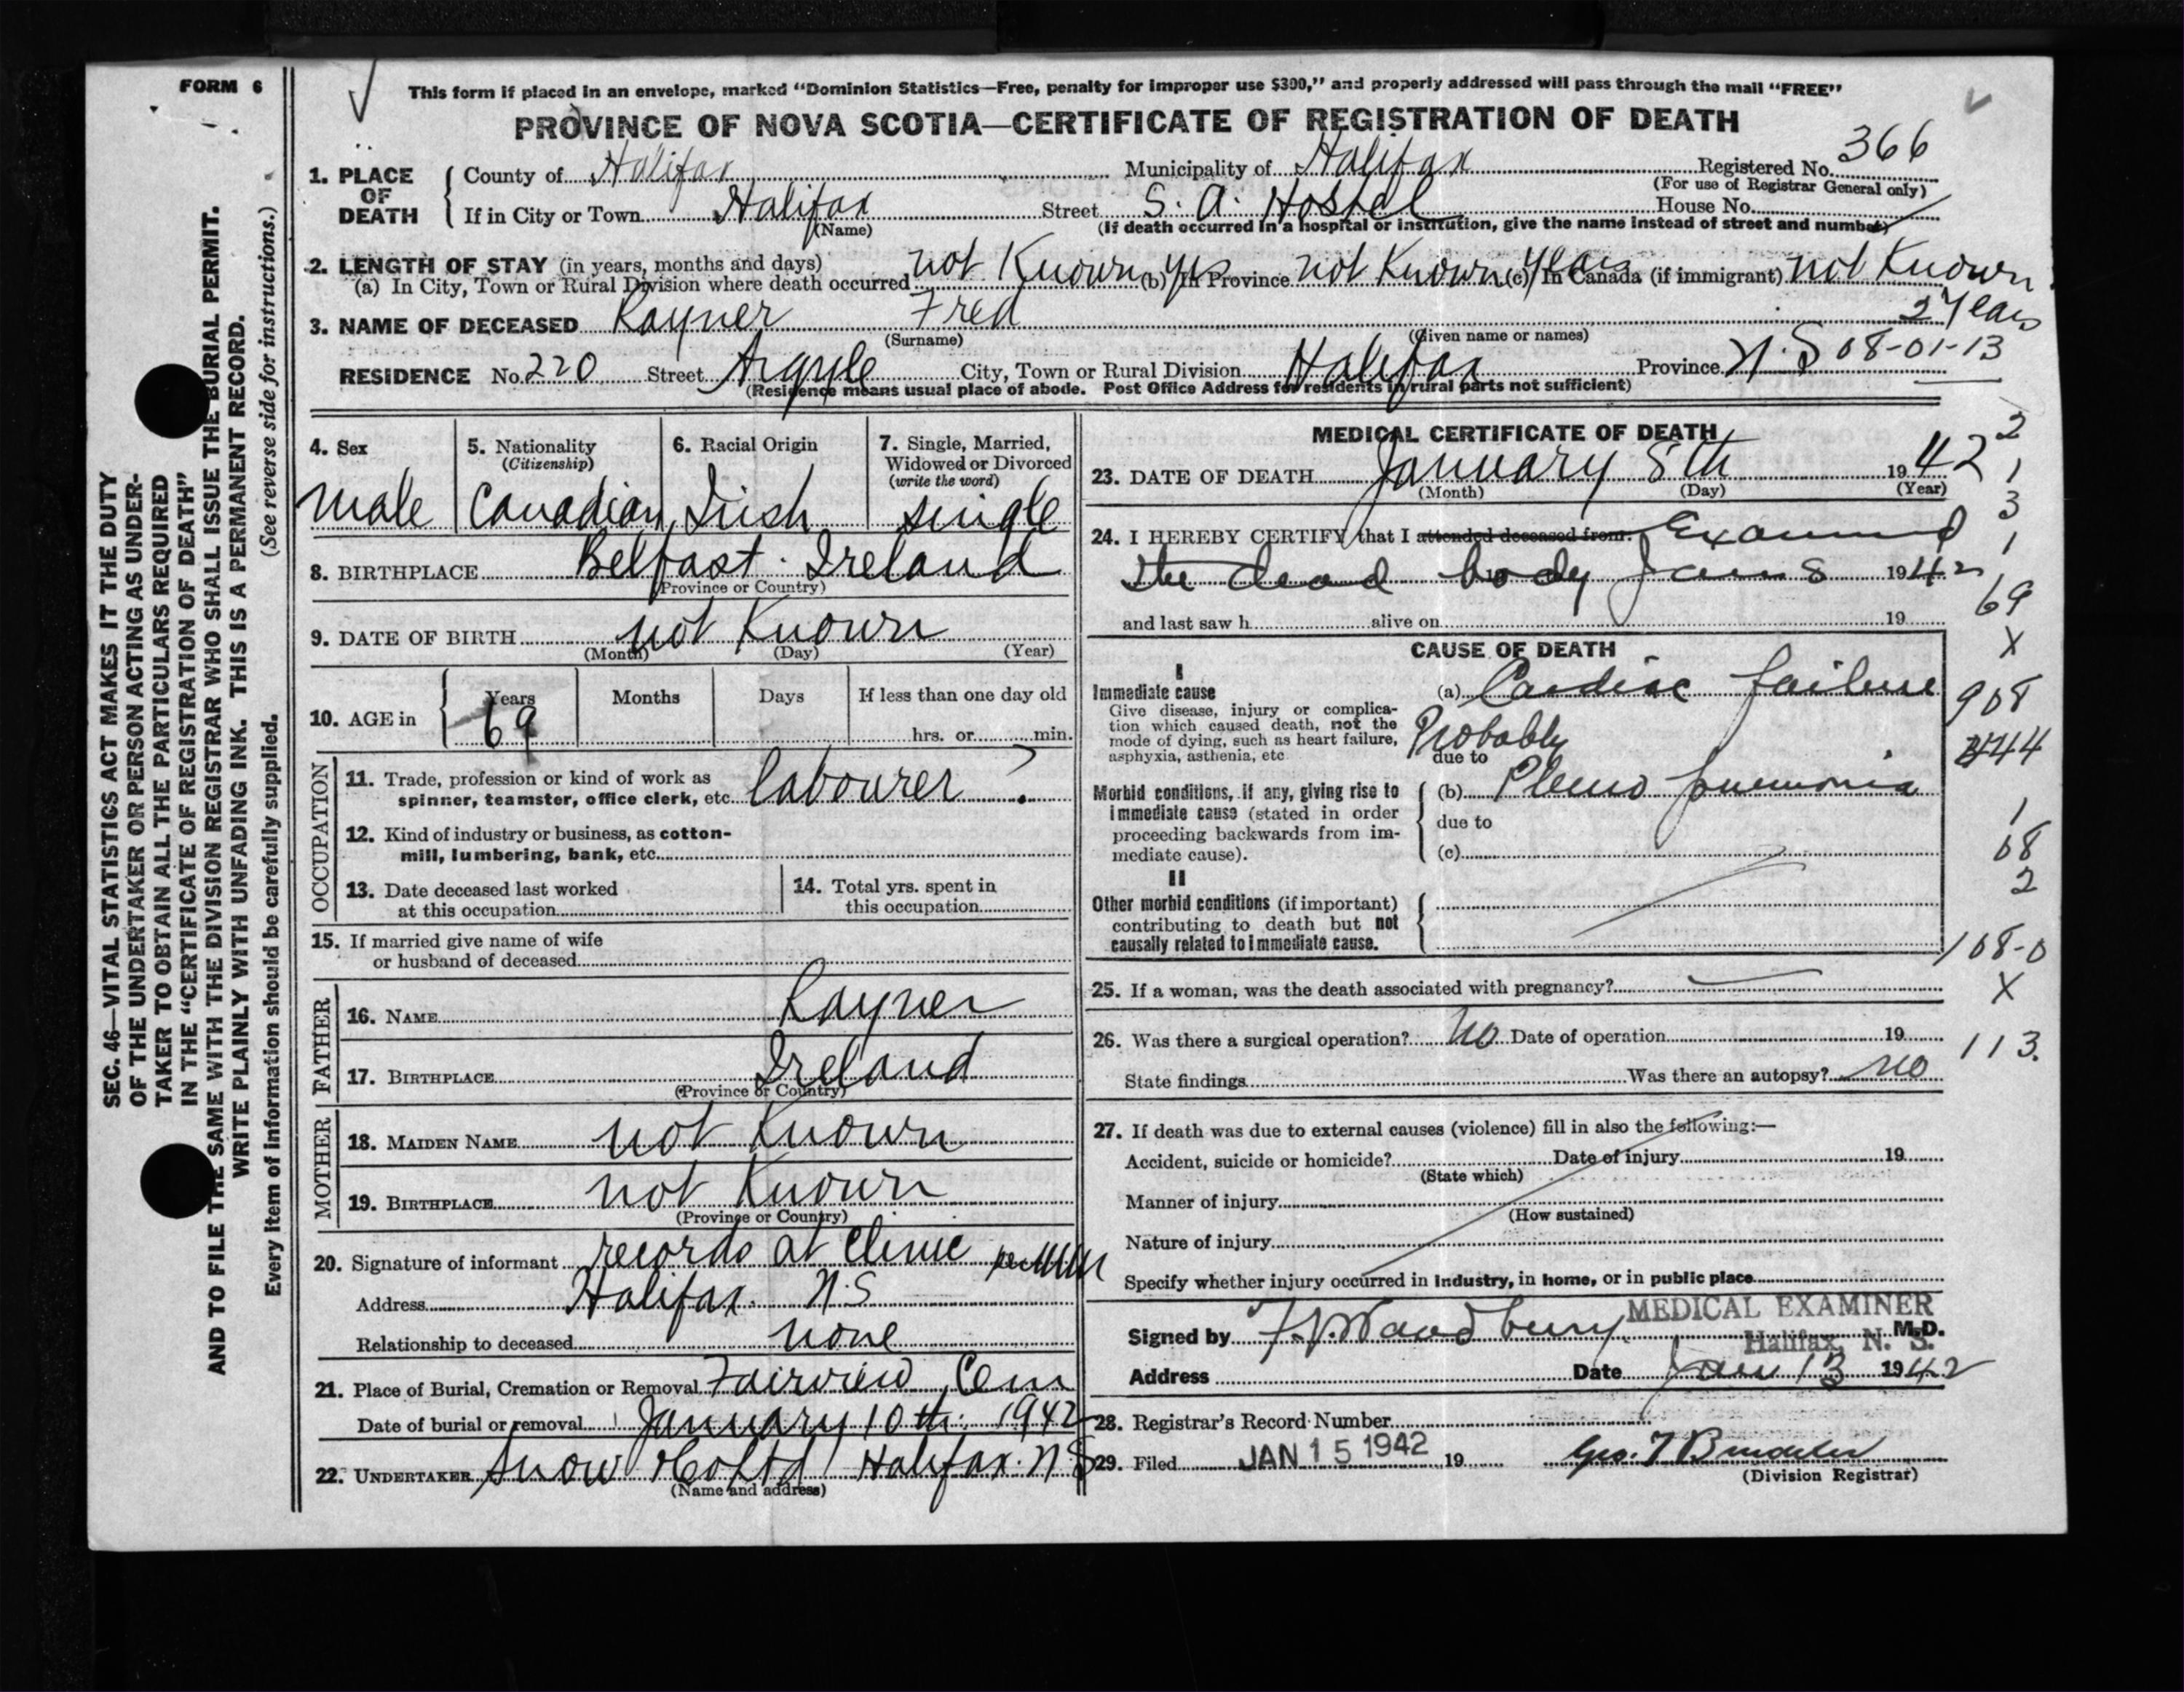 FORM 6
This form if placed in an envelope, marked "Dominion Statistics—Free, penalty for improper use $300," and properly addressed will pass through the mail "FREE"
PROVINCE OF NOVA SCOTIA—CERTIFICATE OF REGISTRATION OF DEATH
1. PLACE OF DEATH County of Halifax Municipality of Halifax Registered No. 366
(For use of Registrar General only)
If in City or Town Halifax Street S. A. Hostel House No.
(Name) (If death occurred in a hospital or institution, give the name instead of street and number)
2. LENGTH OF STAY (in years, months and days)
(a) In City, Town or Rural Division where death occurred not Known yrs (b) In Province not Known years (c) In Canada (if immigrant) not Known
2 Years
3. NAME OF DECEASED Rayner Fred
(Surname) (Given name or names)
RESIDENCE No. 220 Street Argyle City, Town or Rural Division Halifax Province N.S 08-01-13
(Residence means usual place of abode. Post Office Address for residents in rural parts not sufficient)
4. Sex male
5. Nationality (Citizenship) Canadian
6. Racial Origin Irish
7. Single, Married, Widowed or Divorced (write the word) single
8. BIRTHPLACE Belfast. Ireland
(Province or Country)
9. DATE OF BIRTH not Known
(Month) (Day) (Year)
10. AGE in Years 69 Months Days If less than one day old
hrs. or min.
OCCUPATION
11. Trade, profession or kind of work as
spinner, teamster, office clerk, etc. labourer ?
12. Kind of industry or business, as cotton-
mill, lumbering, bank, etc.
13. Date deceased last worked
at this occupation
14. Total yrs. spent in
this occupation
15. If married give name of wife
or husband of deceased
FATHER
16. NAME Rayner
17. BIRTHPLACE Ireland
(Province or Country)
MOTHER
18. MAIDEN NAME not Known
19. BIRTHPLACE not Known
(Province or Country)
20. Signature of informant records at Clinic per
Address Halifax. N.S
Relationship to deceased none
21. Place of Burial, Cremation or Removal Fairview Cem
Date of burial or removal January 10th. 1942
22. UNDERTAKER Snow & Co Ltd Halifax. N.S
(Name and address)
MEDICAL CERTIFICATE OF DEATH
23. DATE OF DEATH January 8th 1942
(Month) (Day) (Year)
24. I HEREBY CERTIFY that I attended deceased from: Examined
the dead body Jan 8 1942
and last saw h alive on 19
CAUSE OF DEATH
I
Immediate cause
Give disease, injury or complica-
tion which caused death, not the
mode of dying, such as heart failure,
asphyxia, asthenia, etc
(a) Cardiac failure
Probably
due to
Morbid conditions, if any, giving rise to
immediate cause (stated in order
proceeding backwards from im-
mediate cause).
(b) Pleuro pneumonia
due to
(c)
II
Other morbid conditions (if important)
contributing to death but not
causally related to immediate cause.
25. If a woman, was the death associated with pregnancy?
26. Was there a surgical operation? No Date of operation 19
State findings Was there an autopsy? no
27. If death was due to external causes (violence) fill in also the following:—
Accident, suicide or homicide? Date of injury 19
(State which)
Manner of injury
(How sustained)
Nature of injury
Specify whether injury occurred in industry, in home, or in public place
MEDICAL EXAMINER
Signed by F. V. Woodbury M.D.
Halifax, N. S.
Address Date Jan 13 1942
28. Registrar's Record Number
29. Filed JAN 15 1942 19 Geo. T
(Division Registrar)
2
1
3
1
69
X
908
44
1
08
2
108-0
X
113.
SEC. 46—VITAL STATISTICS ACT MAKES IT THE DUTY
OF THE UNDERTAKER OR PERSON ACTING AS UNDER-
TAKER TO OBTAIN ALL THE PARTICULARS REQUIRED
IN THE "CERTIFICATE OF REGISTRATION OF DEATH"
AND TO FILE THE SAME WITH THE DIVISION REGISTRAR WHO SHALL ISSUE THE BURIAL PERMIT.
WRITE PLAINLY WITH UNFADING INK. THIS IS A PERMANENT RECORD.
Every item of information should be carefully supplied. (See reverse side for instructions.)